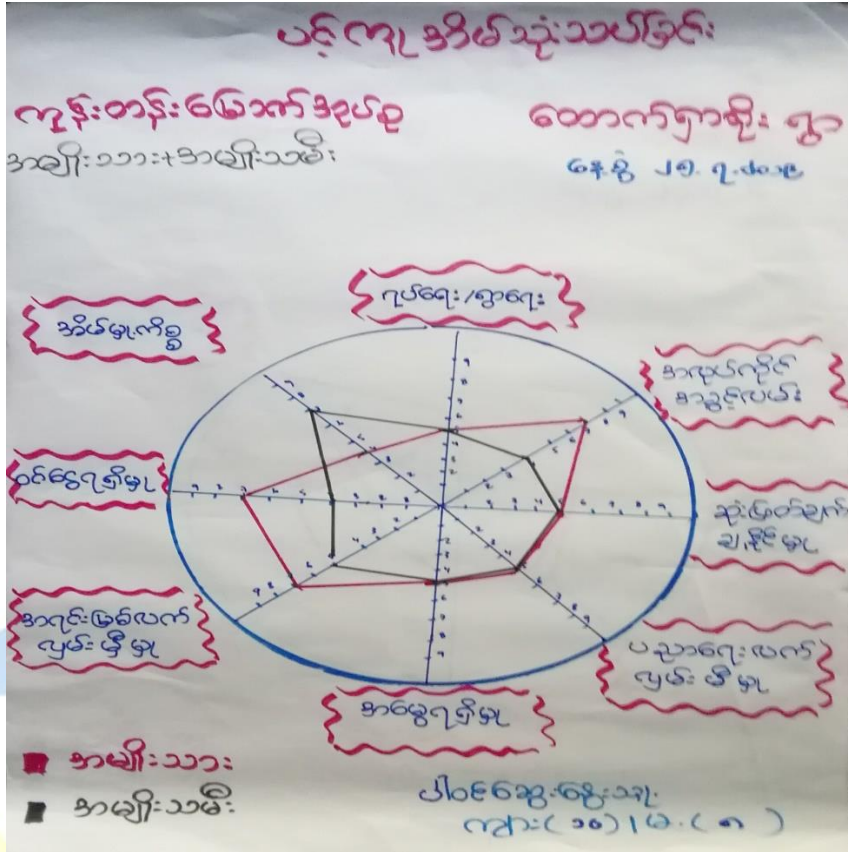 ပင့်ကူအိမ်သုံးသပ်ခြင်း
ကွန်းတန်းမြောက်အုပ်စု
ထောက်ရှာစိုး ရွာ
အမျိုးသား+အမျိုးသမီး
နေ့စွဲ ၂၅.၇.၂၀၁၉
ရပ်ရေး/ရွာရေး
အိမ်မှုကိစ္စ
အလုပ်ကိုင်
အခွင့်လမ်း
ဝင်ငွေရရှိမှု
ဆုံးဖြတ်ချက်
ချနိုင်မှု
အရင်းမြစ်လက်
လှမ်းမှီမှု
ပညာရေးလက်
လှမ်းမှီမှု
အမွေရရှိမှု
အမျိုးသား
အမျိုးသမီး
ပါဝင်ဆွေးနွေးသူ
ကျား(၁၀)၊မ.(၈)